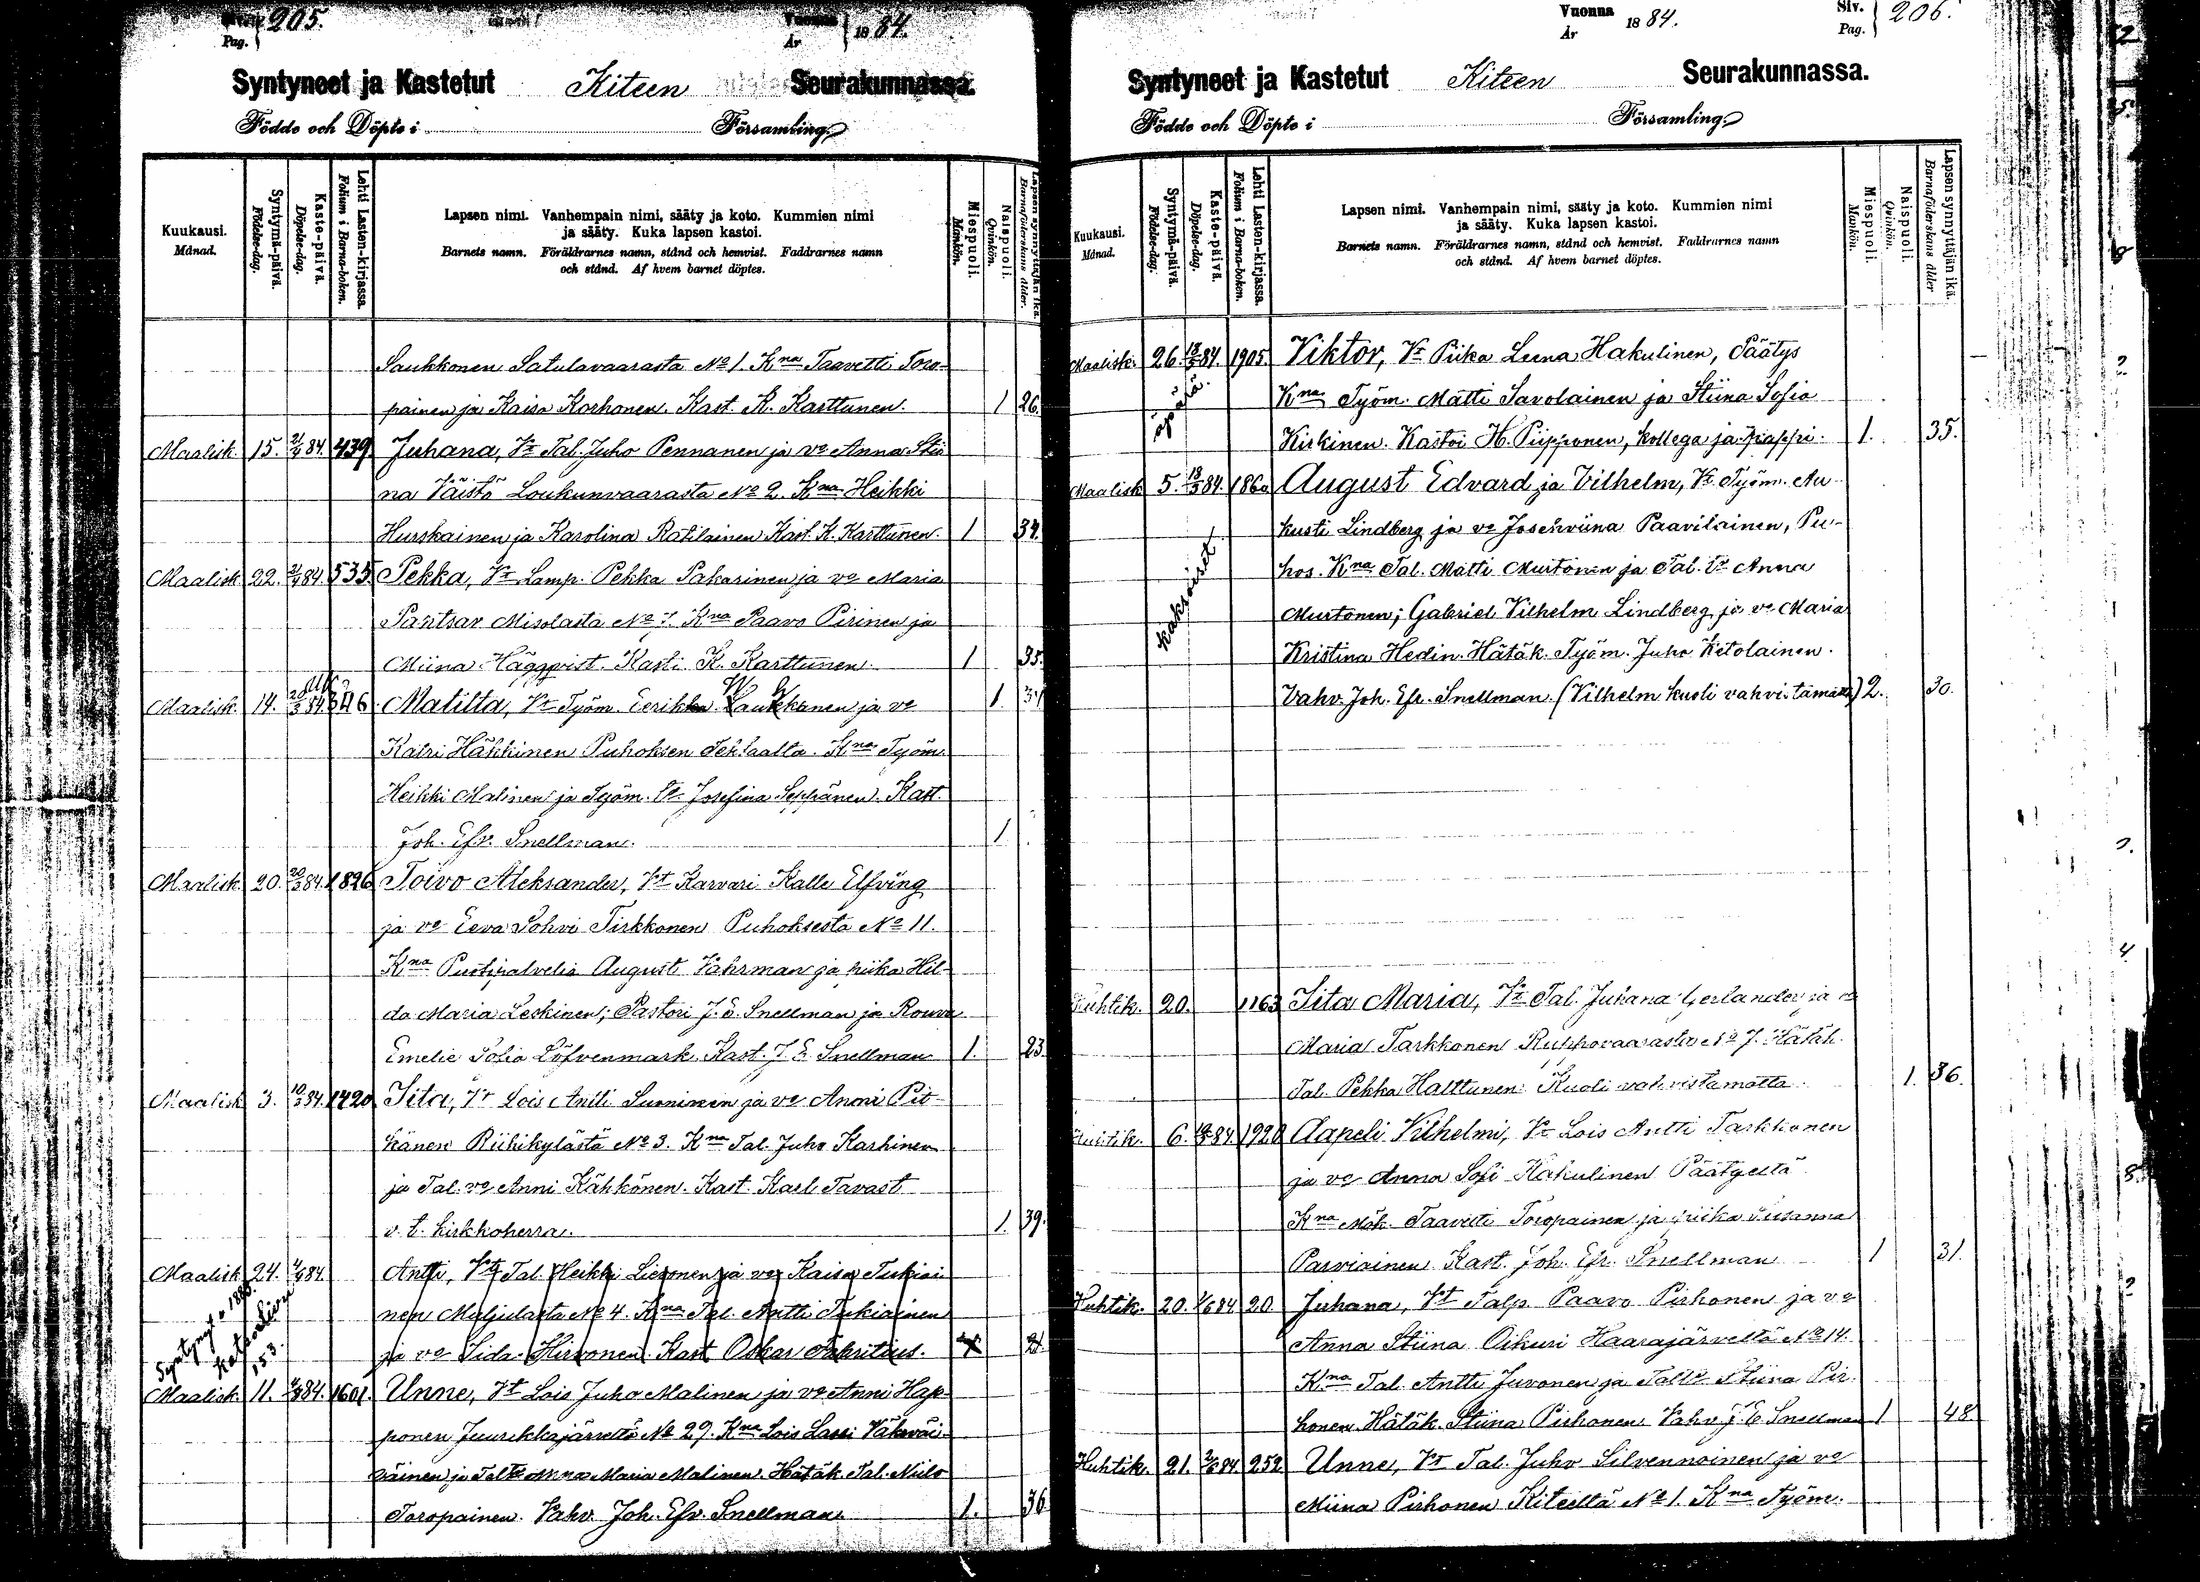 Pag. 205.
Vuonna
År 1884.
Syntyneet ja Kastetut Kiteen Seurakunnassa.
Födde och Döpte i Församling.
Kuukausi.
Månad.
Syntymä-päivä.
Födelse-dag.
Kaste-päivä.
Döpelse-dag.
Lehti Lasten-kirjassa.
Folium i Barna-boken.
Lapsen nimi. Vanhempain nimi, sääty ja koto. Kummien nimi
ja sääty. Kuka lapsen kastoi.
Barnets namn. Föräldrarnes namn, stånd och hemvist. Faddrarnes namn
och stånd. Af hvem barnet döptes.
Miespuoli.
Mankön.
Naispuoli.
Qvinkön.
Lapsen synnyttäjän ikä.
Barnaföderskans ålder.
Saukkonen Satulavaarasta No 1. Kna Taavetti Toro-
painen ja Kaisa Korhonen. Kast. K. Karttunen. 1 26.
Maalisk. 15. 84. 439 Juhana, Vt Tal. Juho Pennanen ja vo Anna Stii
na Väistö Loukunvaarasta No 2. Kna Heikki
Hurskainen ja Karolina Ratilainen Kast. K. Karttunen. 1 34.
Maalisk 22. 84. 535 Pekka, Vt Lamp. Pekka Pakarinen ja vo Maria
Pantsar Misolasta No 7. Kna Paavo Pirinen ja
Miina Häggqvist. Kasti K. Karttunen. 1 35.
Maalisk. 14. 84 346 Matilta, Vt Työm. Eerikka Laukkanen ja vo 1. 34
Katri Häkkinen Puhoksen Tehtaalta. Kna Työm.
Heikki Malinen ja Työm. Vo Josefina Seppänen. Kast.
Joh. Efr. Snellman. 1
Maalisk 20. 84. 1826 Toivo Aleksander, Vt Karvari Kalle Elfving
ja vo Eeva Sohvi Tirkkonen Puhoksesta No 11.
Kna Puotipalvelia August Fahrman ja piika Hil-
da Maria Leskinen; Pastori J. E. Snellman ja Rouva
Emelie Sofia Löfvenmark. Kast. J. E. Snellman 1. 23
Maalisk 3. 84. 1420 Iita, Vt Lois Antti Surninen ja vo Anni Pit-
känen Riihikylästä No 3. Kna Tal. Juho Karhinen
ja Tal. vo Anni Kähkönen. Kast. Karl Tavast
v. t. kirkkoherra. 1. 39.
Maalisk 24. 84. Antti, Vt Tal. Heikki Lieronen ja vo Kaisa Tukiai
nen Muljulasta No 4. Kna Tal. Antti Tukiainen
ja vo Iida Hirvonen Kast Oskar Fabritius.
Syntynyt
153.
Maalisk 11. 84. 1601. Unne, Vt Lois Juho Malinen ja vo Anni Hap-
ponen Juurikkajärveltä No 29. Kna Lois Lassi Väkeväi-
näinen ja Taltr Anna Maria Malinen. Hätäk. Tal. Niilo
Toropainen. Vahv. Joh. Efr. Snellman. 1. 36
Vuonna
År 1884.
Siv.
Pag. 206.
Syntyneet ja Kastetut Kiteen Seurakunnassa.
Födde och Döpte i Församling.
Kuukausi.
Månad.
Syntymä-päivä.
Födelse-dag.
Kaste-päivä.
Döpelse-dag.
Lehti Lasten-kirjassa.
Folium i Barna-boken.
Lapsen nimi. Vanhempain nimi, sääty ja koto. Kummien nimi
ja sääty. Kuka lapsen kastoi.
Barnets namn. Föräldrarnes namn, stånd och hemvist. Faddrarnes namn
och stånd. Af hvem barnet döptes.
Miespuoli.
Mankön.
Naispuoli.
Qvinkön.
Lapsen synnyttäjän ikä.
Barnaföderskans ålder
Maalisk. 26. 84. 1905. Viktor, Vt Piika Leena Hakulinen, Päätys
äpärä. Kna Työm. Matti Savolainen ja Stiina Sofia
Kirkinen. Kastoi H. Piipponen, kollega ja pappi. 1. 35.
Maalisk 5. 84. 1860 August Edvard ja Vilhelm, Vt Työm. Au-
kusti Lindberg ja vo Josehviina Paavilainen, Pu-
kaksoiset hos. Kna Tal. Matti Murtonen ja Tal. Vo Anna
Murtonen; Gabriel Vilhelm Lindberg ja vo Maria
Kristina Hedin. Hätäk. Työm. Juho Ketolainen.
Vahv. Joh. Efr. Snellman. (Vilhelm kuoli vahvistamatta) 2. 30.
Huhtik. 20. 1163 Iita Maria, Vt Tal. Juhana Gerlander ja vo
Maria Tarkkonen Ruppovaarasta No 7. Hätäk.
Tal. Pekka Halttunen. Kuoli vahvistamatta. 1. 36.
Huhtik. 6. 84 1920 Aapeli Vilhelmi, Vt Lois Antti Tarkkonen
ja vo Anna Sofi Hakulinen Päätyeltä
Kna Mäk. Taavetti Toropainen ja piika Susanna
Parviainen Kast. Joh. Efr. Snellman 1 31.
Huhtik. 20. 84 20 Juhana, Vt Talp. Paavo Pirhonen ja vo
Anna Stiina Oikuri Haarajärveltä No 14.
Kna Tal. Antti Juvonen ja Taltr Stiina Pir-
honen Hätäk. Stiina Pirhonen Vahv. J. E. Snellman 1 48
Huhtik. 21. 84. 252 Unne, Vt Tal. Juho Silvennoinen ja vo
Miina Pirhonen Kiteeltä No 1. Kna Työm.